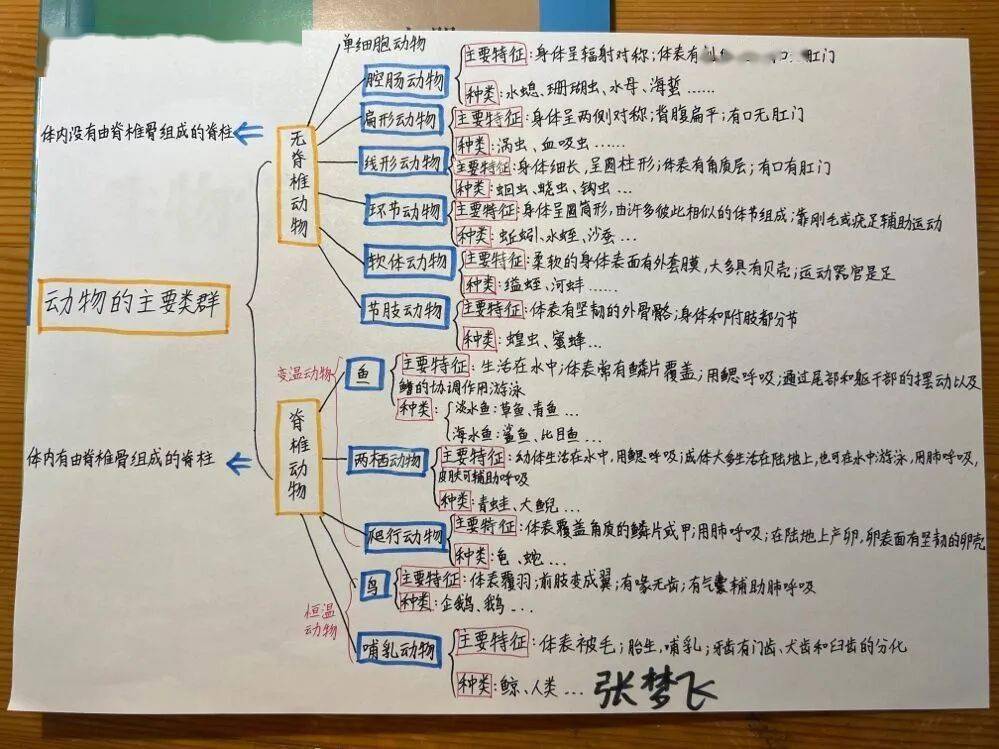 单细胞动物
主要特征:身体呈辐射对称;体表有 口 肛门
腔肠动物
种类:水螅、珊瑚虫、水母、海蜇……
体内没有由脊椎骨组成的脊柱
无脊椎动物
扁形动物
主要特征:身体呈两侧对称;背腹扁平;有口无肛门
种类:涡虫、血吸虫……
线形动物
主要特征:身体细长,呈圆柱形;体表有角质层;有口有肛门
种类:蛔虫、蛲虫、钩虫…
环节动物
主要特征:身体呈圆筒形,由许多彼此相似的体节组成;靠刚毛或疣足辅助运动
种类:蚯蚓、水蛭、沙蚕…
软体动物
主要特征:柔软的身体表面有外套膜,大多具有贝壳;运动器官是足
种类:缢蛏、河蚌……
动物的主要类群
节肢动物
主要特征:体表有坚韧的外骨骼;身体和附肢都分节
种类:蝗虫、蜜蜂…
变温动物
鱼
主要特征:生活在水中;体表常有鳞片覆盖;用鳃呼吸;通过尾部和躯干部的摆动以及
鳍的协调作用游泳
种类:
淡水鱼:草鱼、青鱼…
海水鱼:鲨鱼、比目鱼…
脊椎动物
体内有由脊椎骨组成的脊柱
两栖动物
主要特征:幼体生活在水中,用鳃呼吸;成体大多生活在陆地上,也可在水中游泳,用肺呼吸,
皮肤可辅助呼吸
种类:青蛙、大鲵…
爬行动物
主要特征:体表覆盖角质的鳞片或甲;用肺呼吸;在陆地上产卵,卵表面有坚韧的卵壳
种类:龟、蛇…
鸟
主要特征:体表覆羽;前肢变成翼;有喙无齿;有气囊辅助肺呼吸
种类:企鹅、鹅…
恒温
动物
哺乳动物
主要特征:体表被毛;胎生,哺乳;牙齿有门齿、犬齿和臼齿的分化
种类:鲸、人类…
张梦飞